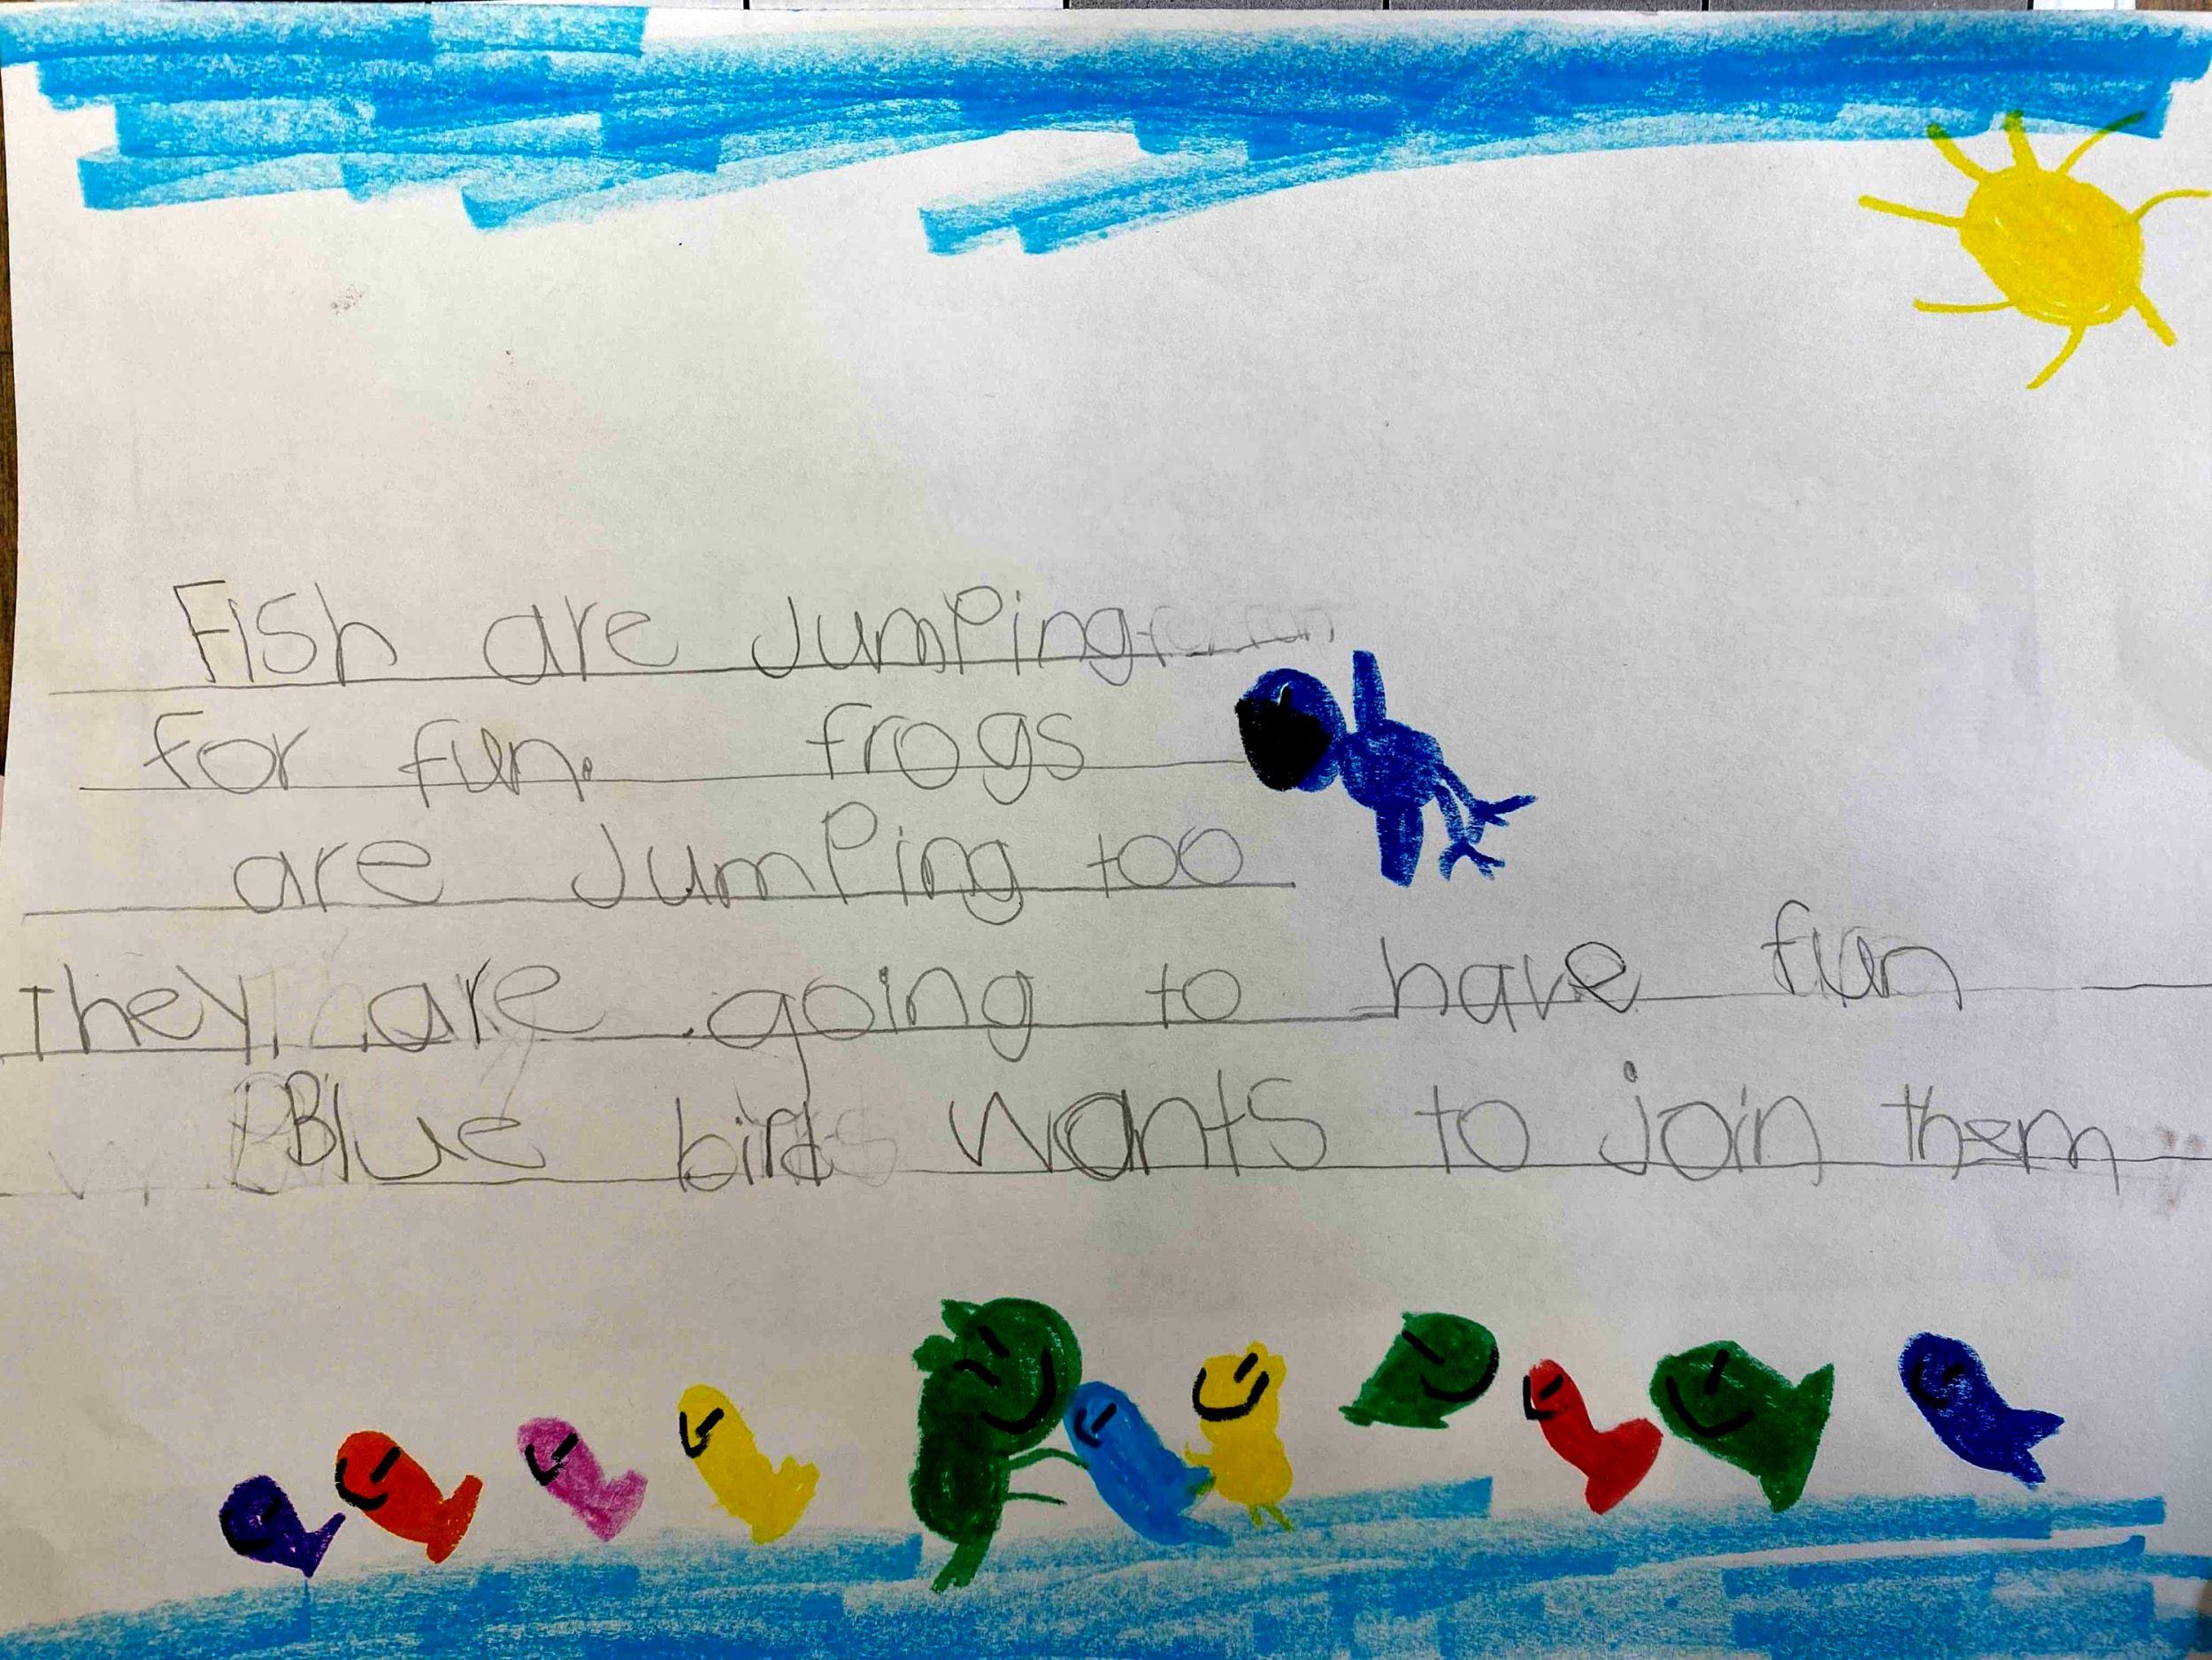 Fish are Jumping
for fun. frogs
are Jumping too
They are going to have fun
Blue bird wants to join them